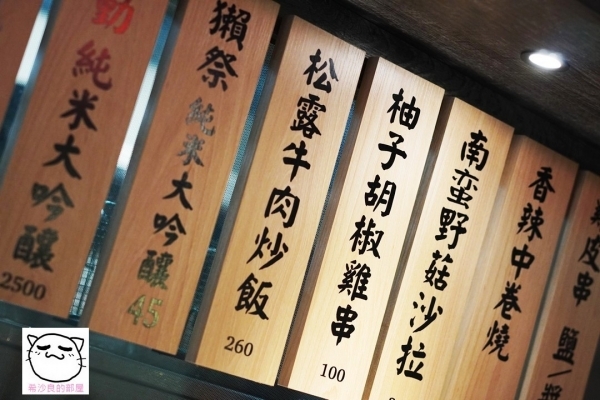 動 純米大吟釀
2500
獺祭 純米大吟釀 45
松露牛肉炒飯
260
柚子胡椒雞串
100
南蛮野菇沙拉
香辣中卷燒
皮串 鹽/醬
希沙良的部屋